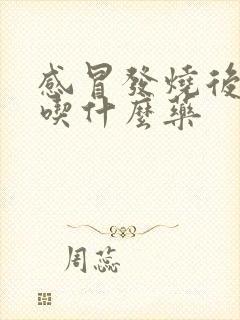 感冒發燒後
喫什麼藥
周蕊